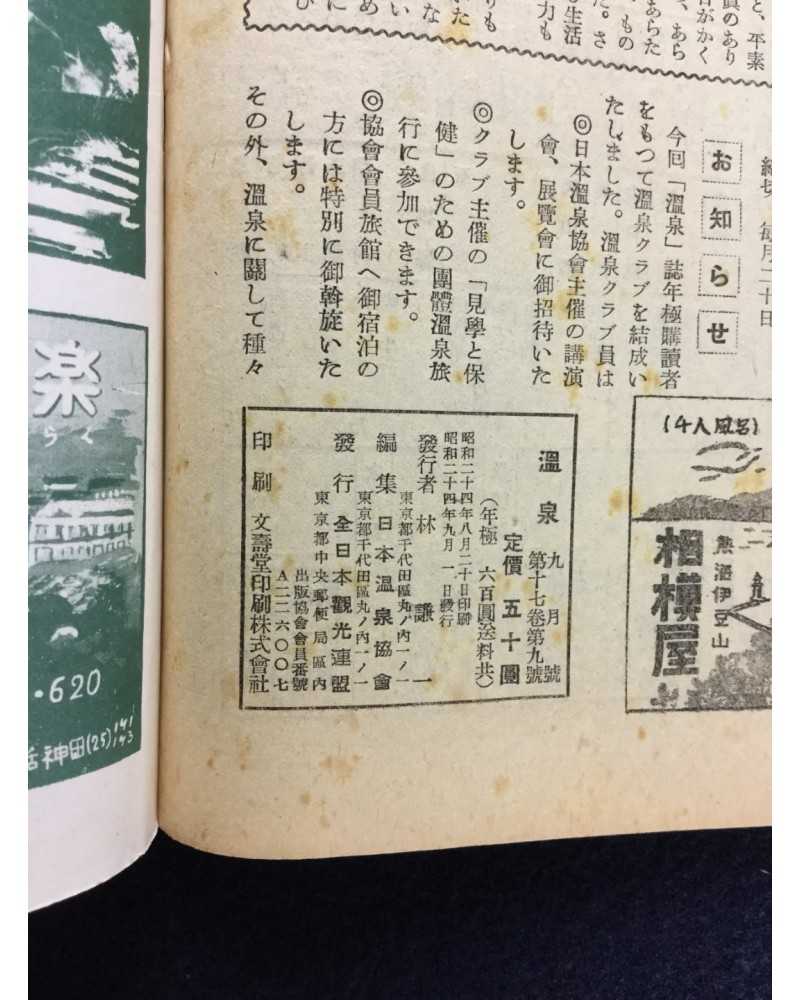 と、平素
お知らせ
今回「溫泉」誌年極購讀者
をもつて溫泉クラブを結成い
たしました。溫泉クラブ員は
◎日本溫泉協會主催の講演
會、展覽會に御招待いた
します。
◎クラブ主催の「見學と保
健」のための團體溫泉旅
行に參加できます。
◎協會會員旅館へ御宿泊の
方には特別に御斡旋いた
します。
その外、溫泉に關して種々
(千人風呂)
熱海伊豆山
相模屋
溫泉 九月號
第十七卷第九號
定價 五十圓
(年極 六百圓送料共)
昭和二十四年八月二十日印刷
昭和二十四年九月一日發行
發行者 林 謙一
東京都千代田區丸ノ內一ノ一
編集 日本溫泉協會
東京都千代田區丸ノ內一ノ一
發行 全日本觀光連盟
東京都中央郵便局區內
出版協會會員番號
A二二六〇〇七
印刷 文壽堂印刷株式會社
楽
らく
・620
話神田(25)141
143